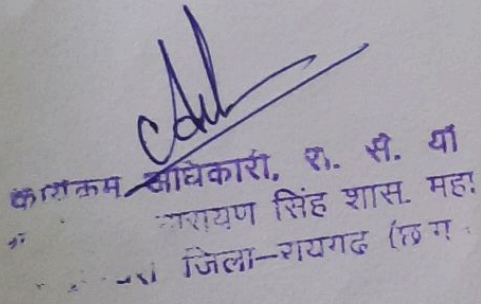 कार्यक्रम अधिकारी, रा. से. यो
नारायण सिंह शास. महा
जिला-रायगढ (छ ग